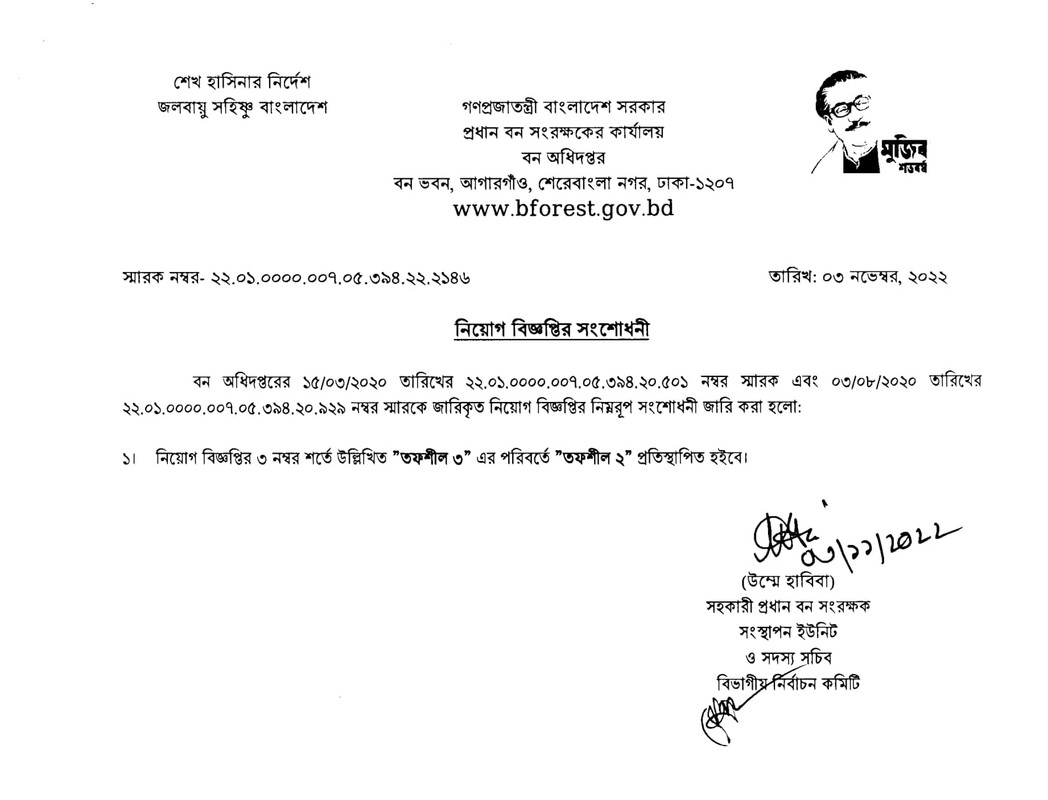 শেখ হাসিনার নির্দেশ
জলবায়ু সহিষ্ণু বাংলাদেশ
গণপ্রজাতন্ত্রী বাংলাদেশ সরকার
প্রধান বন সংরক্ষকের কার্যালয়
বন অধিদপ্তর
বন ভবন, আগারগাঁও, শেরেবাংলা নগর, ঢাকা-১২০৭
www.bforest.gov.bd
মুজিব
শতবর্ষ
স্মারক নম্বর- ২২.০১.০০০০.০০৭.০৫.৩৯৪.২২.২১৪৬
তারিখ: ০৩ নভেম্বর, ২০২২
নিয়োগ বিজ্ঞপ্তির সংশোধনী
বন অধিদপ্তরের ১৫/০৩/২০২০ তারিখের ২২.০১.০০০০.০০৭.০৫.৩৯৪.২০.৫০১ নম্বর স্মারক এবং ০৩/০৮/২০২০ তারিখের
২২.০১.০০০০.০০৭.০৫.৩৯৪.২০.৯২৯ নম্বর স্মারকে জারিকৃত নিয়োগ বিজ্ঞপ্তির নিম্নরূপ সংশোধনী জারি করা হলো:
১। নিয়োগ বিজ্ঞপ্তির ৩ নম্বর শর্তে উল্লিখিত "তফশীল ৩" এর পরিবর্তে "তফশীল ২" প্রতিস্থাপিত হইবে।
০৩/১১/২০২২
(উম্মে হাবিবা)
সহকারী প্রধান বন সংরক্ষক
সংস্থাপন ইউনিট
ও সদস্য সচিব
বিভাগীয় নির্বাচন কমিটি